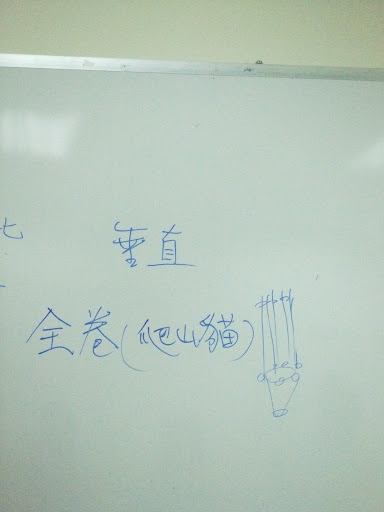 七
垂直
全卷(爬山貓)